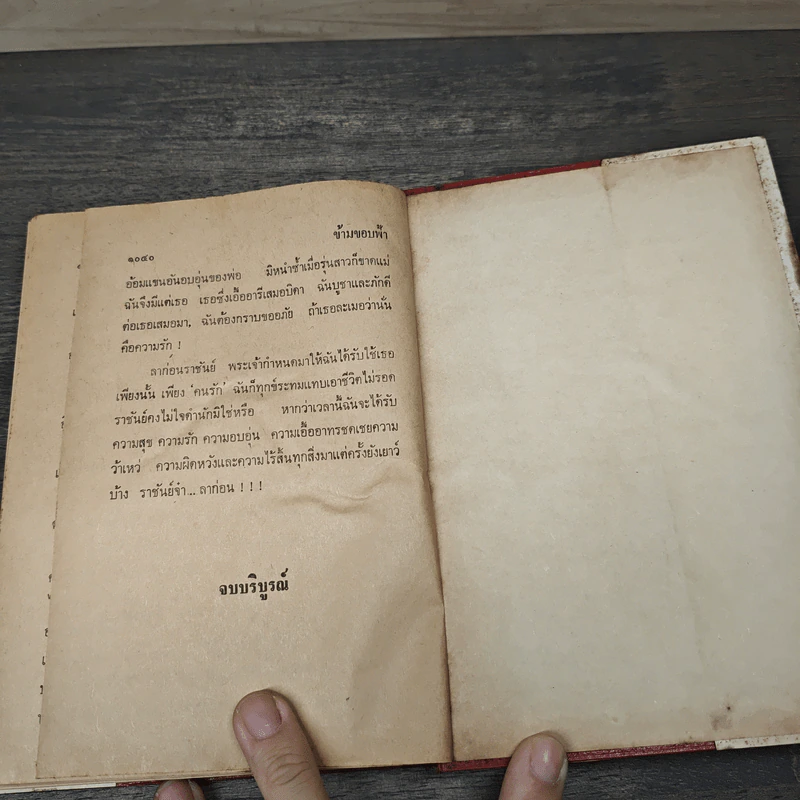 ๑๐๔๐
ข้ามขอบฟ้า
อ้อมแขนอันอบอุ่นของพ่อ มิหนำซ้ำเมื่อรุ่นสาวก็ขาดแม่
ฉันจึงมีแต่เธอ เธอซึ่งเอื้ออารีเสมอบิดา ฉันบูชาและภักดี
ต่อเธอเสมอมา, ฉันต้องกราบขออภัย ถ้าเธอละเมอว่านั่น
คือความรัก !
ลาก่อนราชันย์ พระเจ้ากำหนดมาให้ฉันได้รับใช้เธอ
เพียงนั้น เพียง ‘คนรัก’ ฉันก็ทุกข์ระทมแทบเอาชีวิตไม่รอด
ราชันย์คงไม่ใจดำนักมิใช่หรือ หากว่าเวลานี้ฉันจะได้รับ
ความสุข ความรัก ความอบอุ่น ความเอื้ออาทรชดเชยความ
ว้าเหว่ ความผิดหวังและความไร้สิ้นทุกสิ่งมาแต่ครั้งยังเยาว์
บ้าง ราชันย์จ๋า... ลาก่อน ! ! !
จบบริบูรณ์